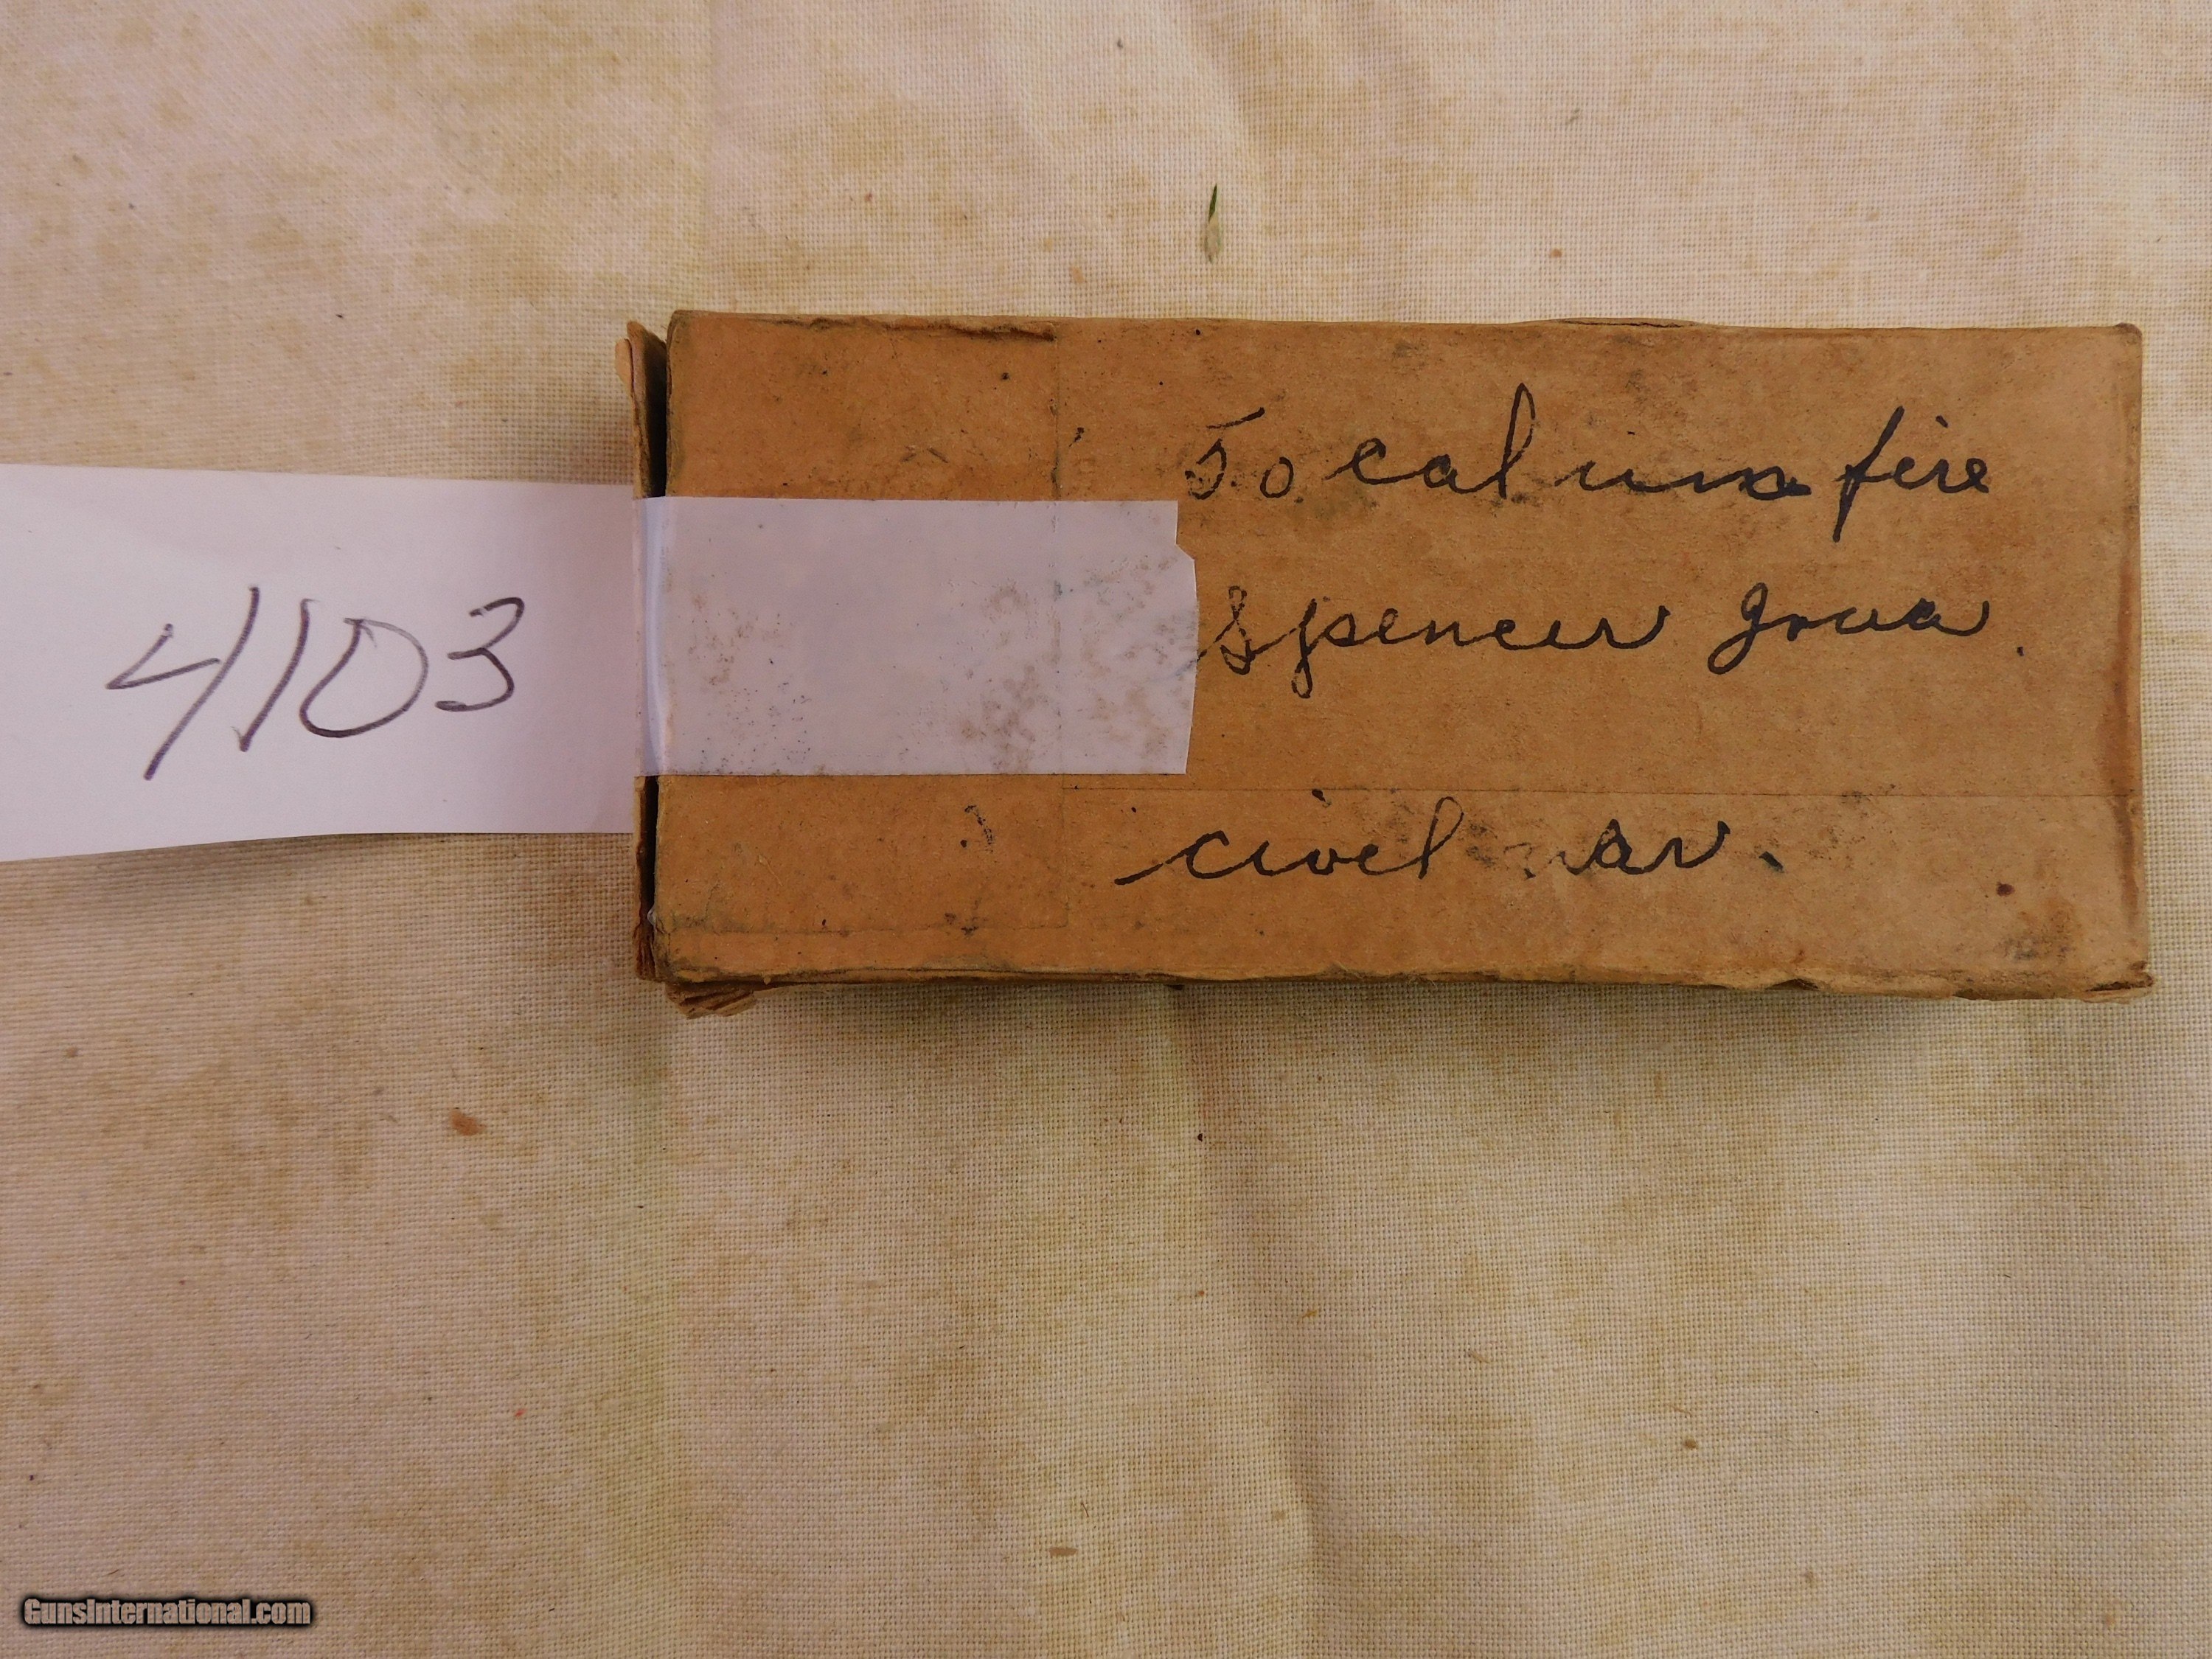 4103
50 cal rim fire
spencer
civel war.
GunsInternational.com